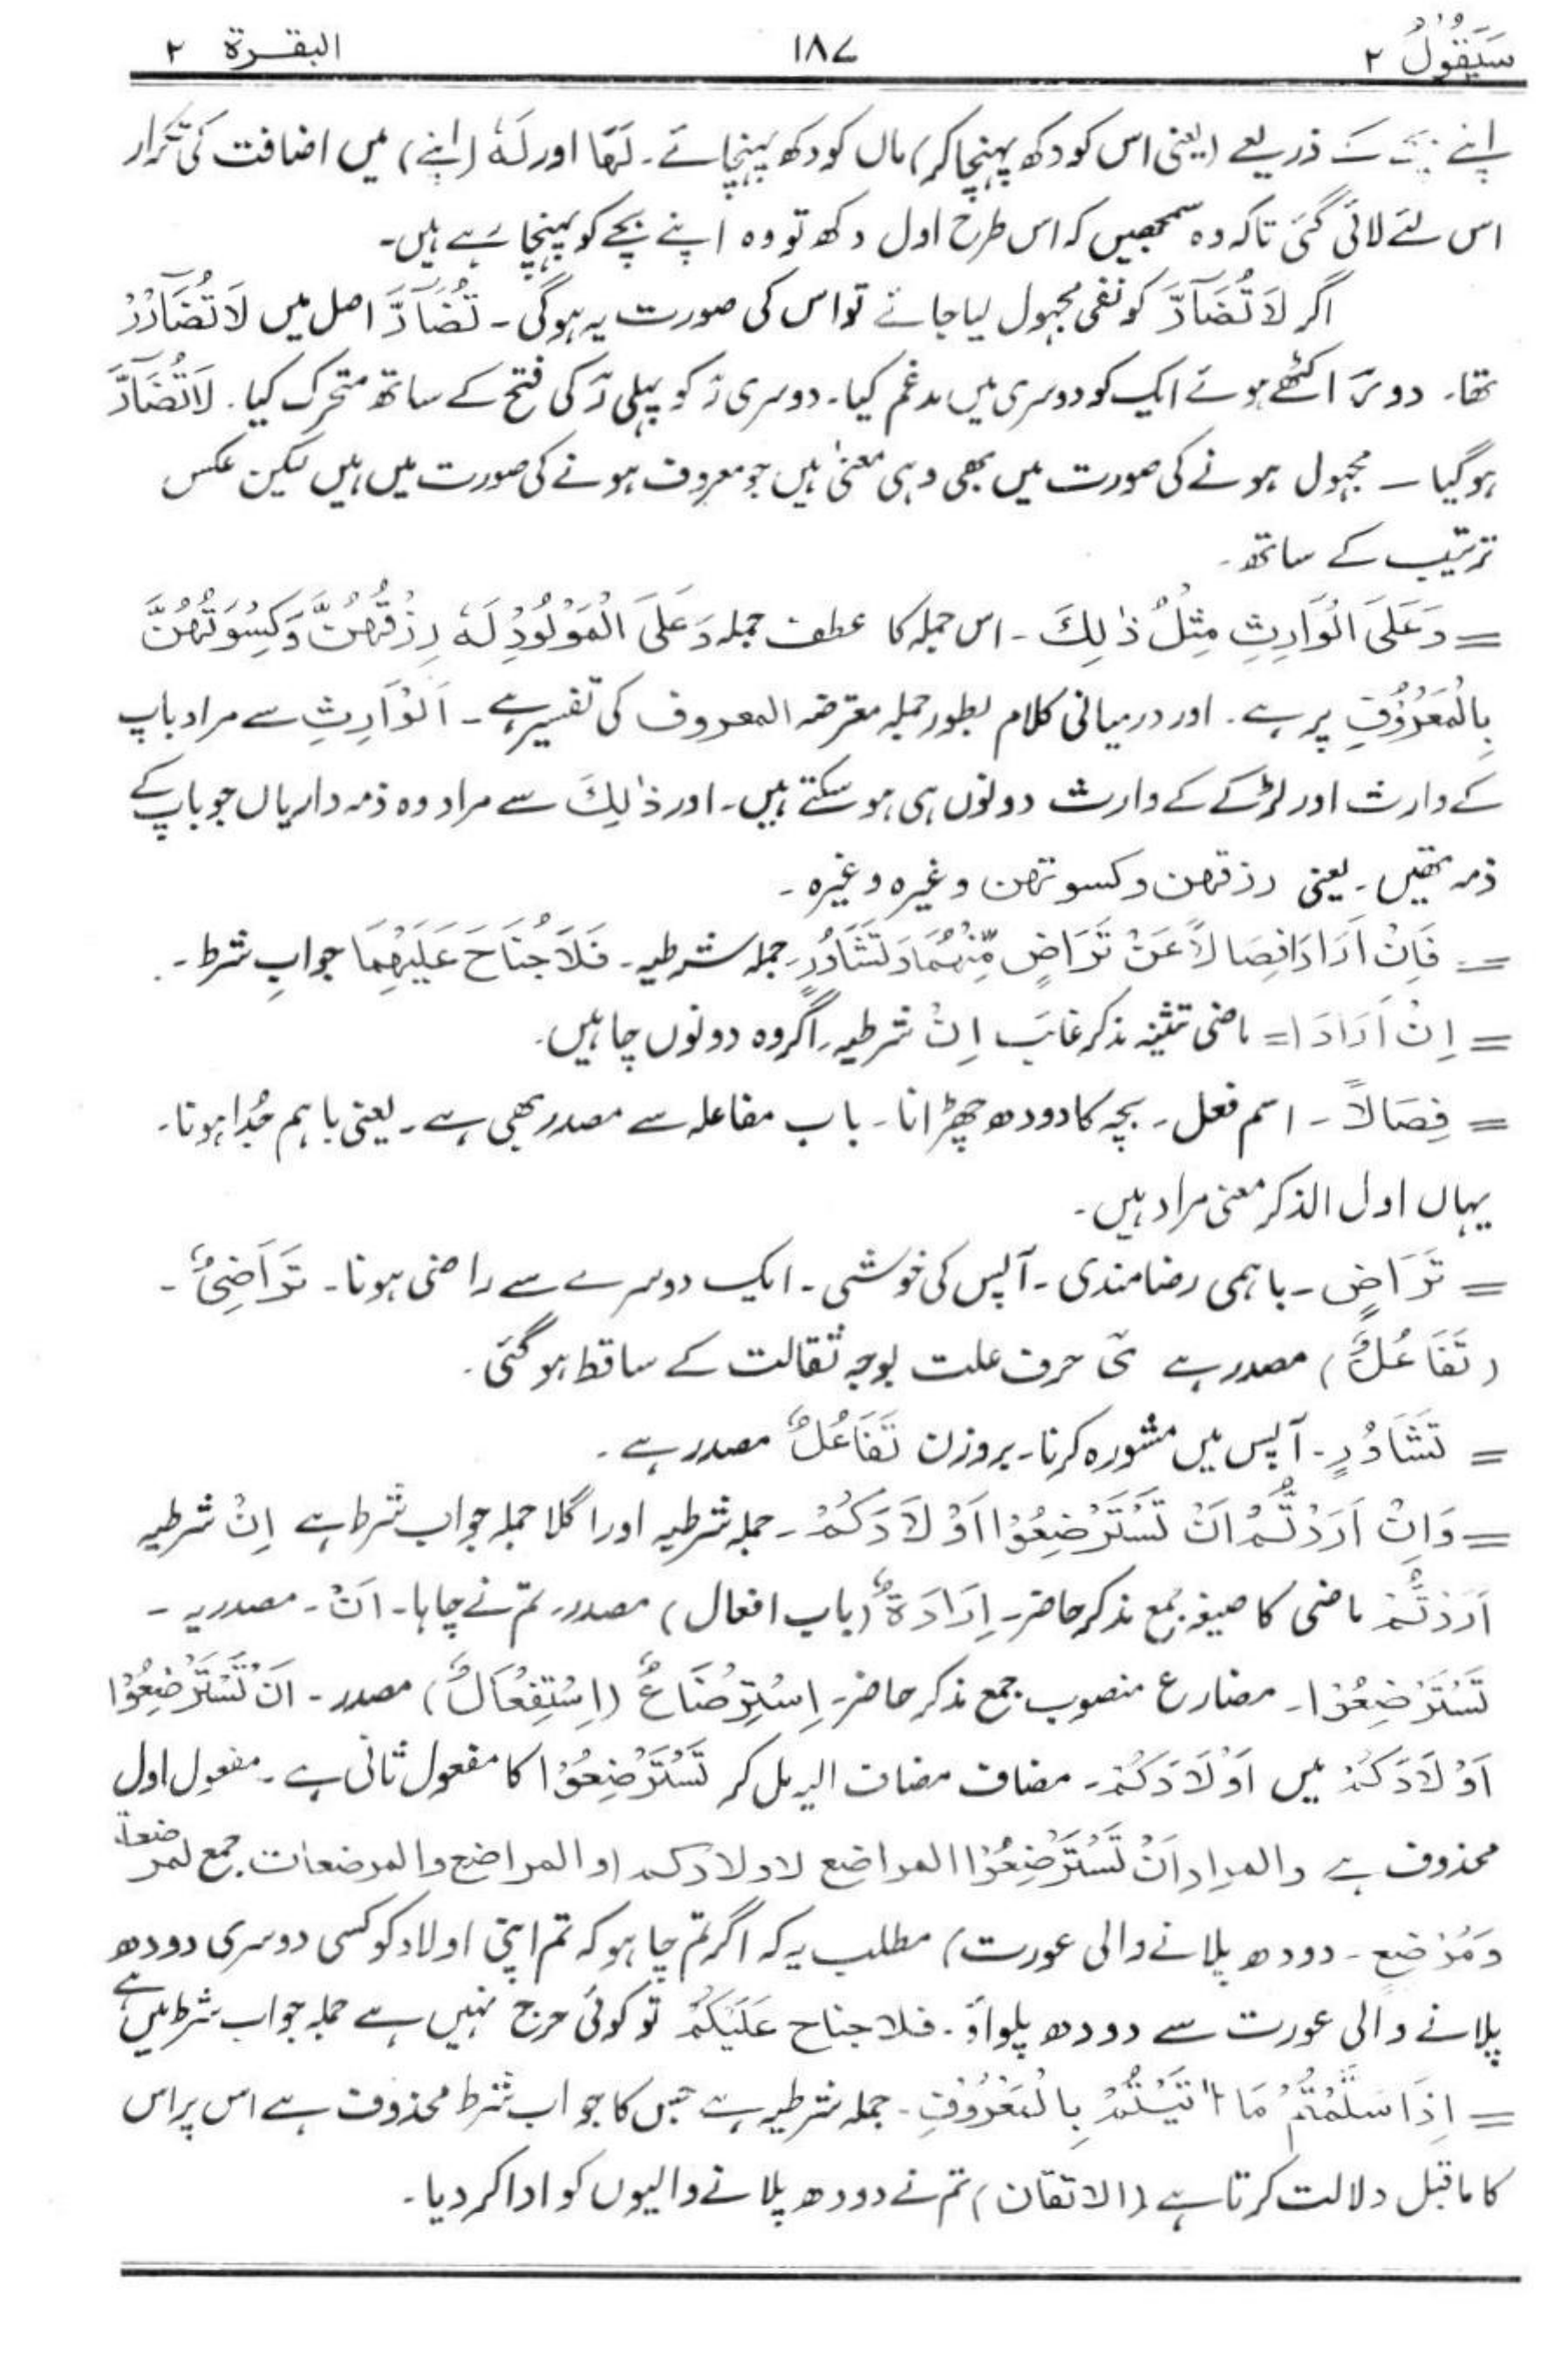 سَیَقُوْلُ ۲ ۱۸۷ البقرۃ ۲
اپنے کے ذریعے (یعنی اس کو دکھ پہنچا کر) ماں کو دکھ پہنچائے۔ لَھَا اور لَہٗ (اپنے) میں اضافت کی تکرار
اس لئے لائی گئی تاکہ وہ سمجھیں کہ اس طرح اول دکھ تو وہ اپنے بچے کو پہنچا رہے ہیں۔
اگر لَا تُضَآرَّ کو نفی مجہول لیا جائے تو اس کی صورت یہ ہوگی۔ تُضَآرَّ اصل میں لَا تُضَارَرْ
تھا۔ دو رؔ اکٹھے ہوئے ایک کو دوسری میں مدغم کیا۔ دوسری رؔ کو پہلی رؔ کی فتح کے ساتھ متحرک کیا۔ لَا تُضَآرَّ
ہوگیا۔ مجہول ہونے کی صورت میں بھی وہی معنیٰ ہیں جو معروف ہونے کی صورت میں ہیں لیکن عکس
ترتیب کے ساتھ۔
= وَعَلَی الْوَارِثِ مِثْلُ ذٰلِکَ۔ اس جملہ کا عطف جملہ وَعَلَی الْمَوْلُوْدِ لَہٗ رِزْقُھُنَّ وَکِسْوَتُھُنَّ
بِالْمَعْرُوْفِ پر ہے۔ اور درمیانی کلام بطور جملہ معترضہ المعروف کی تفسیر ہے۔ اَلْوَارِثِ سے مراد باپ
کے وارث اور لڑکے کے وارث دونوں ہی ہو سکتے ہیں۔ اور ذٰلِکَ سے مراد وہ ذمہ داریاں جو باپ کے
ذمہ تھیں۔ یعنی رزقھن وکسوتھن وغیرہ وغیرہ۔
= فَاِنْ اَرَادَا فِصَالًا عَنْ تَرَاضٍ مِّنْھُمَا وَتَشَاوُرٍ۔ جملہ شرطیہ۔ فَلَا جُنَاحَ عَلَیْھِمَا جوابِ شرط۔
= اِنْ اَرَادَا = ماضی تثنیہ مذکر غائب اِنْ شرطیہ۔ اگر وہ دونوں چاہیں۔
= فِصَالًا۔ اسم فعل۔ بچہ کا دودھ چھڑانا۔ باب مفاعلہ سے مصدر بھی ہے۔ یعنی باہم جُدا ہونا۔
یہاں اول الذکر معنی مراد ہیں۔
= تَرَاضٍ۔ باہمی رضامندی۔ آپس کی خوشی۔ ایک دوسرے سے راضی ہونا۔ تَرَاضِیٌ۔
(تَفَاعُلٌ) مصدر ہے یؔ حرف علت بوجہ ثقالت کے ساقط ہوگئی۔
= تَشَاوُرٍ۔ آپس میں مشورہ کرنا۔ بروزن تَفَاعُلٌ مصدر ہے۔
= وَاِنْ اَرَدْتُّمْ اَنْ تَسْتَرْضِعُوْا اَوْلَادَکُمْ۔ جملہ شرطیہ اور اگلا جملہ جواب شرط ہے اِنْ شرطیہ
اَرَدْتُّمْ ماضی کا صیغہ جمع مذکر حاضر۔ اِرَادَۃٌ (باب افعال) مصدر۔ تم نے چاہا۔ اَنْ۔ مصدریہ۔
تَسْتَرْضِعُوْا۔ مضارع منصوب جمع مذکر حاضر۔ اِسْتِرْضَاعٌ (اِسْتِفْعَالٌ) مصدر۔ اَنْ تَسْتَرْضِعُوْا
اَوْلَادَکُمْ میں اَوْلَادَکُمْ۔ مضاف مضاف الیہ مل کر تَسْتَرْضِعُوْا کا مفعول ثانی ہے۔ مفعول اول
محذوف ہے والمراد اَنْ تَسْتَرْضِعُوْا المراضع لاولادکم (والمراضع والمرضعات جمع لمرضعۃ
وَمُرْضِعٍ۔ دودھ پلانے والی عورت) مطلب یہ کہ اگر تم چاہو کہ تم اپنی اولاد کو کسی دوسری دودھ
پلانے والی عورت سے دودھ پلواؤ۔ فلا جناح عَلَیْکُمْ تو کوئی حرج نہیں ہے جملہ جواب شرط میں ہے
= اِذَا سَلَّمْتُمْ مَا اٰتَیْتُمْ بِالْمَعْرُوْفِ۔ جملہ شرطیہ ہے جس کا جواب شرط محذوف ہے اس پر اس
کا ماقبل دلالت کرتا ہے (الاتقان) تم نے دودھ پلانے والیوں کو ادا کر دیا۔